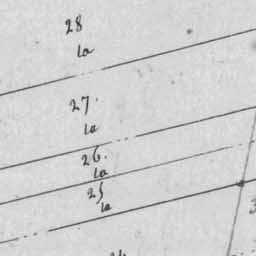 28
la
27.
la
26.
la
25
la